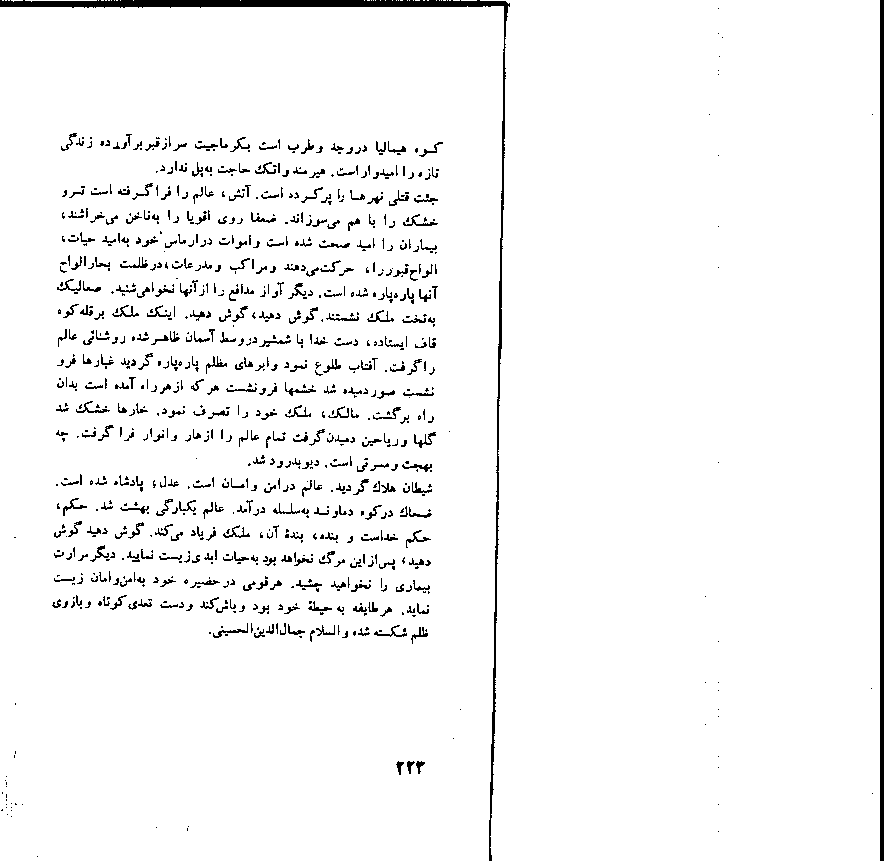 کوه هیمالیا در وجد و طرب است بکرماجیت سر از قبر برآورده زندگی
تازه را امیدوار است. هیرمند و اتک حاجت به‌پل ندارد.
جثت قتلی نهرها را پرکرده است. آتش، عالم را فراگرفته است تر و
خشک را با هم می‌سوزاند. ضعفا روی اقویا را به‌ناخن می‌خراشند،
بیماران را امید صحت شده است و اموات در ارماس خود به‌امید حیات،
الواح قبور را، حرکت می‌دهند و مراکب و مدرعات، در ظلمت بحار الواح
آنها پاره‌پاره شده است. دیگر آواز مدافع را از آنها نخواهی‌شنید. صعالیک
به‌تخت ملک نشستند. گوش دهید، گوش دهید. اینک ملک بر قله‌کوه
قاف ایستاده، دست خدا با شمشیر در وسط آسمان ظاهر شده روشنائی عالم
را گرفت. آفتاب طلوع نمود و ابرهای مظلم پاره‌پاره گردید غبارها فرو
نشست صور دمیده شد خشمها فرونشست هر که از هر راه آمده است بدان
راه برگشت. مالک، ملک خود را تصرف نمود. خارها خشک شد
گلها و ریاحین دمیدن گرفت تمام عالم را ازهار و انوار فرا گرفت. چه
بهجت و مسرتی است. دیو بدرود شد.
شیطان هلاک گردید. عالم در امن و امان است. عدل، پادشاه شده است.
ضحاک در کوه دماوند به‌سلسله درآمد. عالم یکبارگی بهشت شد. حکم،
حکم خداست و بنده، بندهٔ آن، ملک فریاد می‌کند. گوش دهید گوش
دهید، پس از این مرگ نخواهد بود به‌حیات ابدی زیست نمایید. دیگر مرارت
بیماری را نخواهید چشید. هر قومی در حضیره خود به‌امن و امان زیست
نماید. هر طایفه به حیطهٔ خود بود و باش کند و دست تعدی کوتاه و بازوی
ظلم شکسته شده و السلام جمال‌الدین الحسینی.
۲۲۳